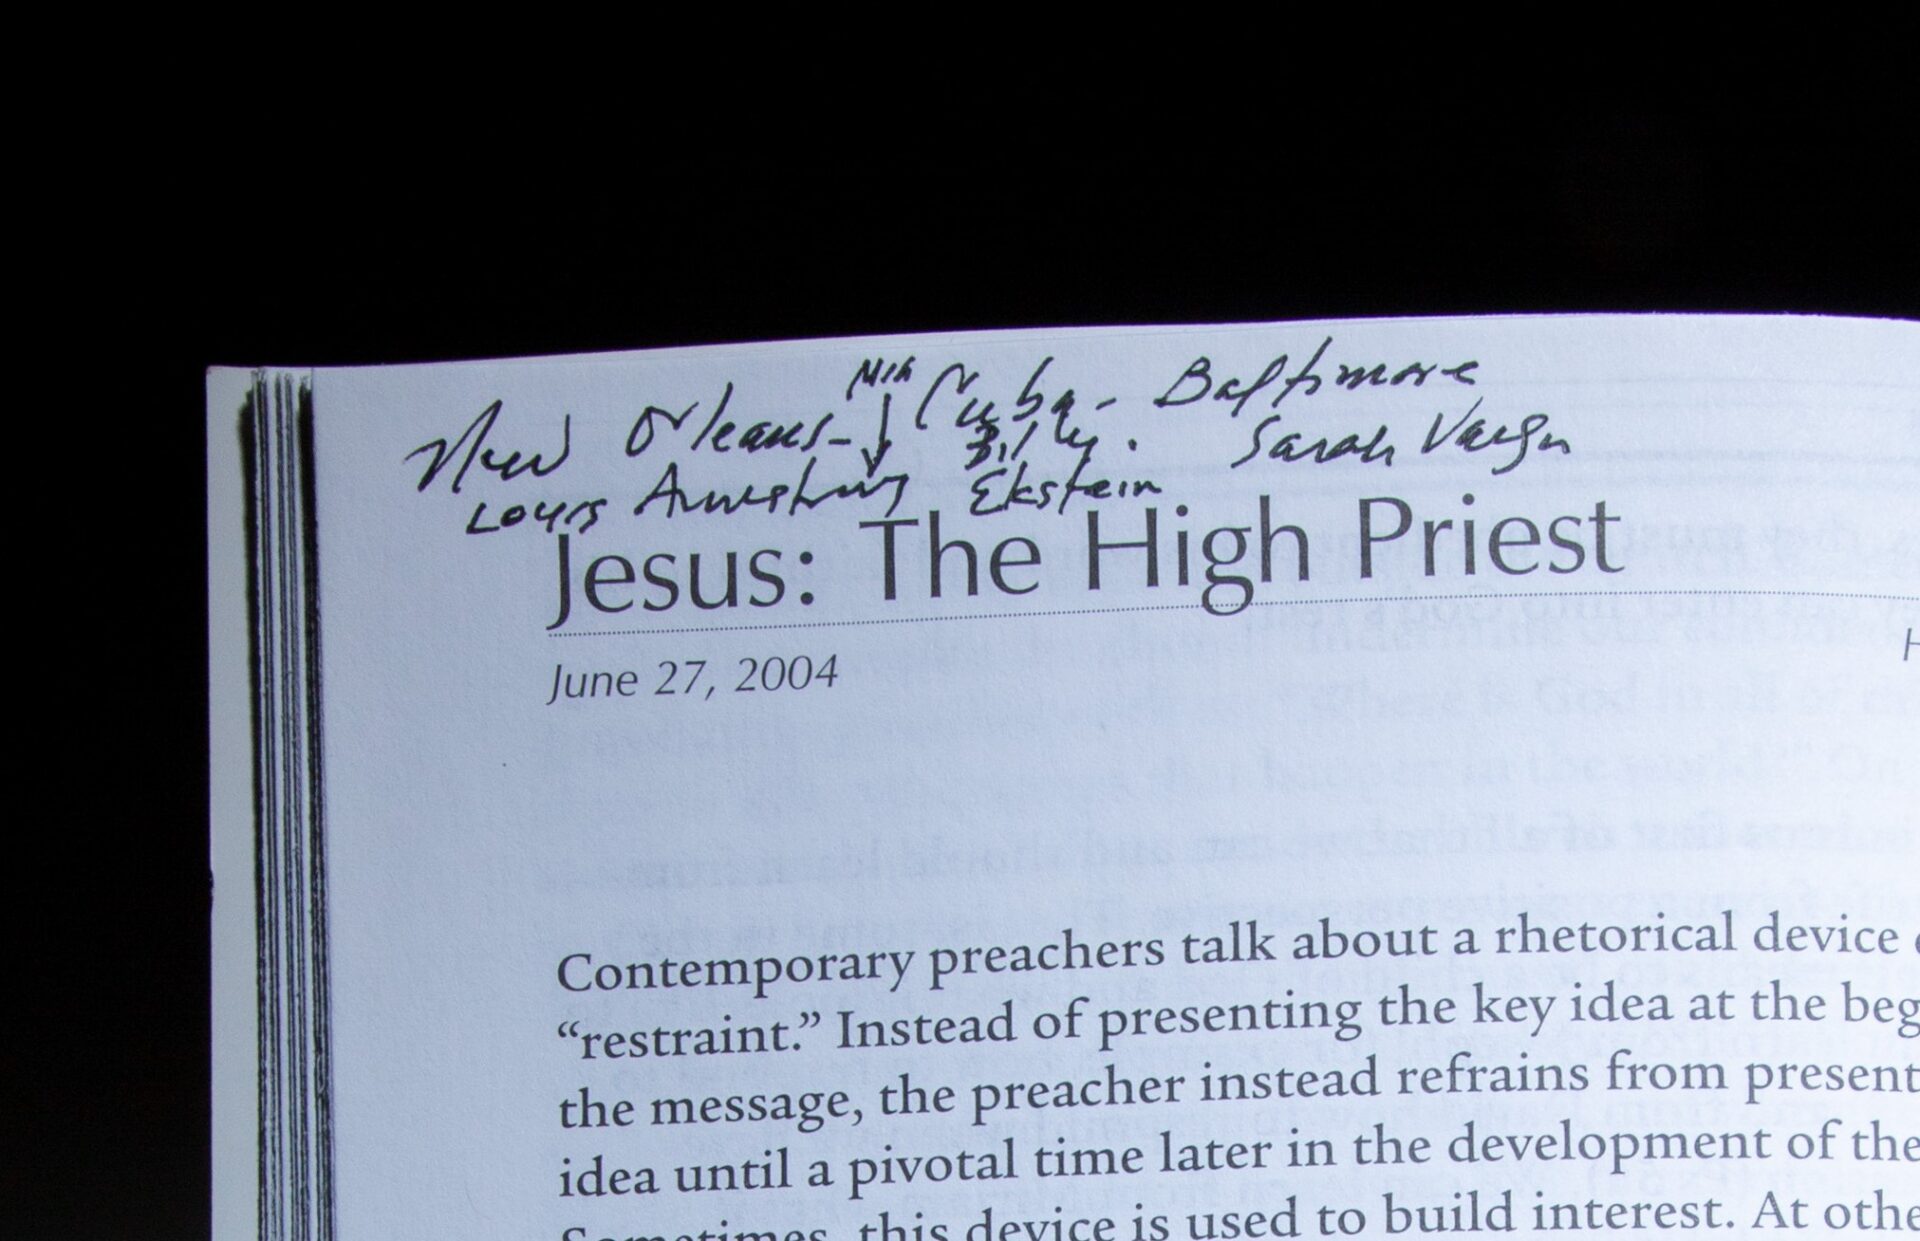 New Orleans - Cuba - Baltimore
Louis Armstrong Billy. Sarah Vaugn
Ekstein
Jesus: The High Priest
June 27, 2004
Contemporary preachers talk about a rhetorical device
“restraint.” Instead of presenting the key idea at the beg
the message, the preacher instead refrains from present
idea until a pivotal time later in the development of the
Sometimes, this device is used to build interest. At othe